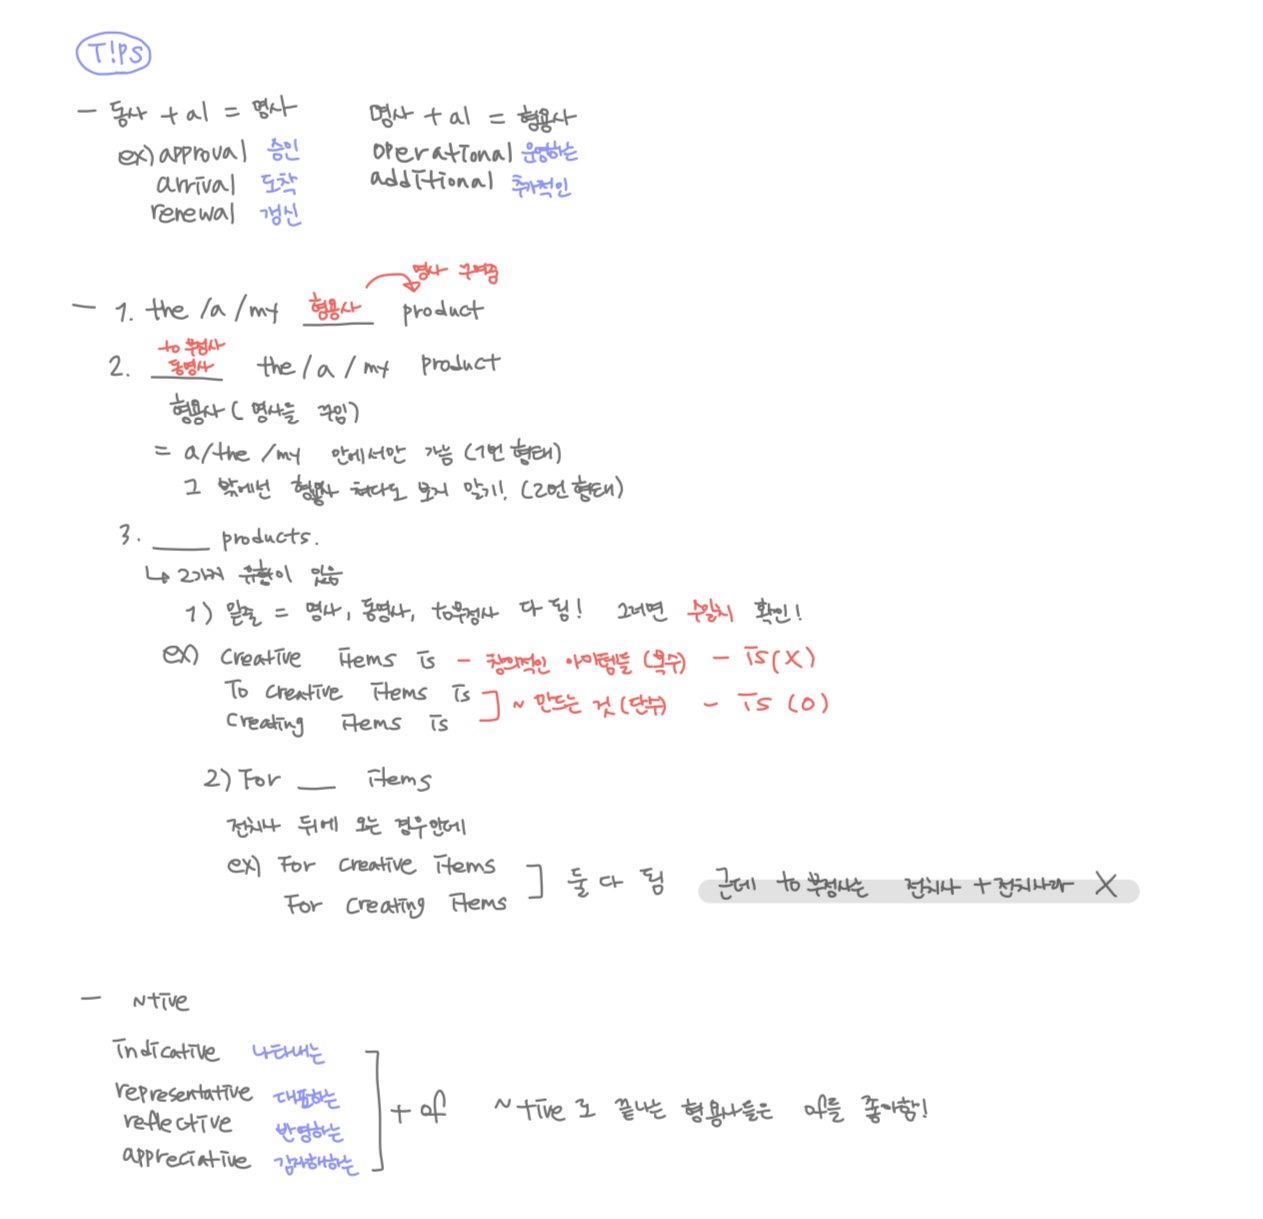 T!PS
- 동사 + al = 명사
ex) approval 승인
arrival 도착
renewal 갱신
명사 + al = 형용사
operational 운영하는
additional 추가적인
명사 꾸며줌
- 1. the /a /my 형용사 product
to 부정사
동명사
2. ___ the / a / my product
형용사 ( 명사를 꾸밈)
= a/the /my 안에서만 가능 (1번 형태)
그 밖에선 형용사 쳐다도 보지 말기! (2번 형태)
3. ___ products.
↳ 2가지 유형이 있음
1) 앞줄 = 명사, 동명사, to부정사 다 됨! 그러면 수일치 확인!
ex) Creative items is - 창의적인 아이템들 (복수) - is (X)
To creative items is
Creating items is
] ~ 만드는 것 (단수) - is (O)
2) For ___ items
전치사 뒤에 오는 경우인데
ex) For creative items
For creating items
] 둘 다 됨 근데 to 부정사는 전치사 + 전치사라 X
- ~tive
indicative 나타내는
representative 대표하는
reflective 반영하는
appreciative 감사해하는
] + of ~tive로 끝나는 형용사들은 of를 좋아함!